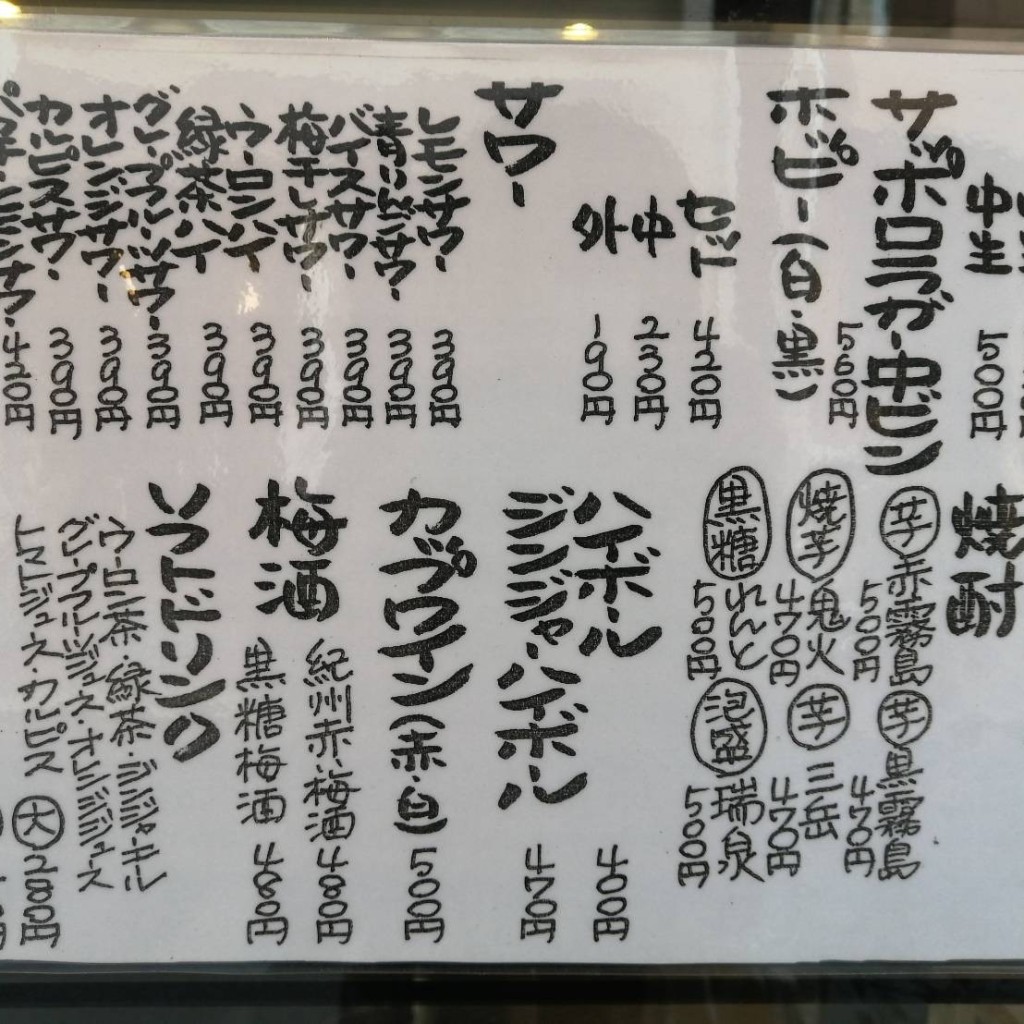 中生 500円
サッポロラガー中ビン 560円
ホッピー(白・黒)
セット 420円
中 230円
外 190円
サワー
レモンサワー 390円
青りんごサワー 390円
バイスサワー 390円
梅干しサワー 390円
ウーロンハイ 390円
緑茶ハイ 390円
グレープフルーツサワー 390円
オレンジサワー 390円
カルピスサワー 390円
420円
焼酎
芋 赤霧島 500円
芋 黒霧島 470円
焼芋 鬼火 470円
芋 三岳 470円
黒糖 れんと 500円
泡盛 瑞泉 500円
ハイボール 400円
ジンジャーハイボール 470円
カップワイン(赤・白) 500円
梅酒
紀州赤い梅酒 480円
黒糖梅酒 480円
ソフトドリンク
ウーロン茶・緑茶・ジンジャーエール
グレープフルーツジュース・オレンジジュース
トマトジュース・カルピス 大 280円